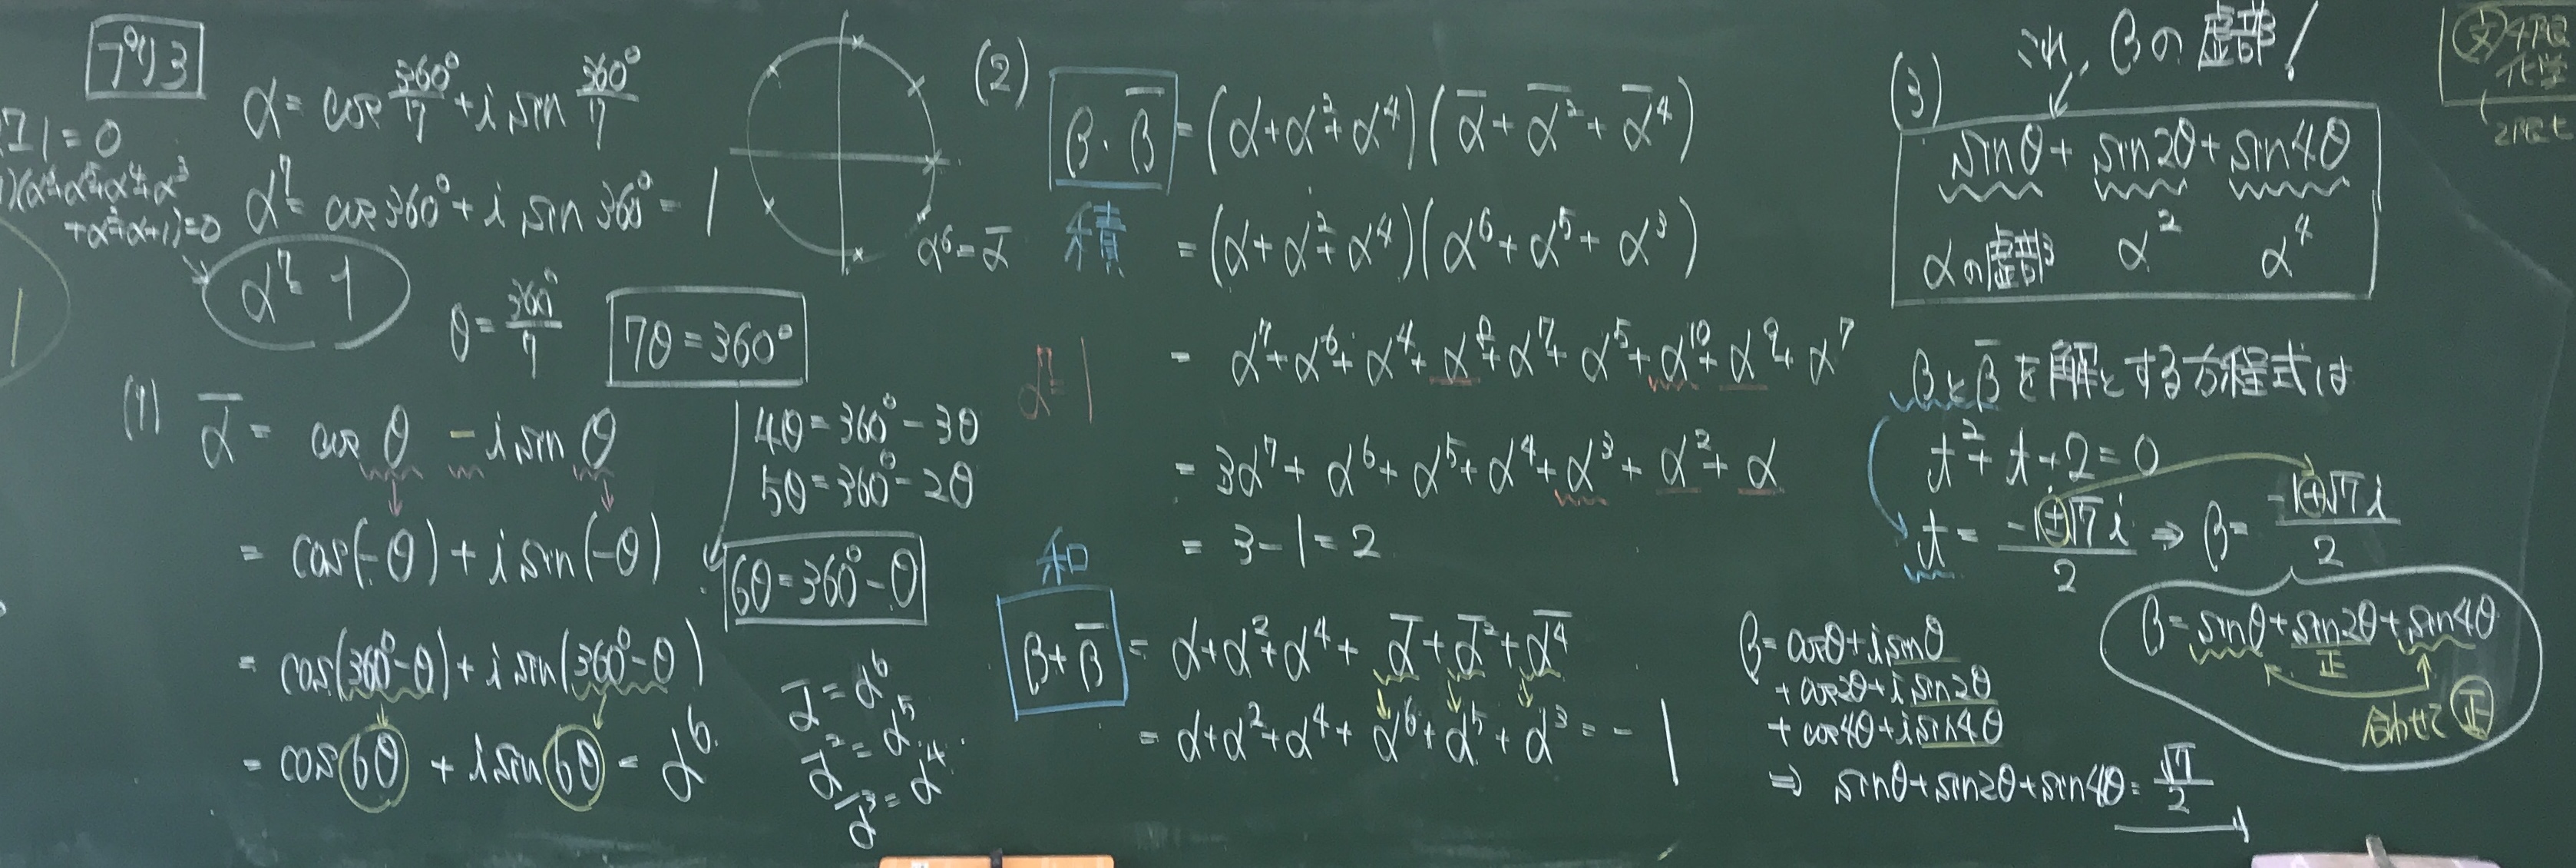 プリ3
α = cos 360°/7 + i sin 360°/7
α⁷ = cos360° + i sin 360° = 1
1 = 0
)(α⁶+α⁵+α⁴+α³
+α²+α+1)=0
α⁷=1
θ = 360°/7
7θ = 360°
α⁶ = ᾱ
(1) ᾱ = cosθ - i sinθ
= cos(-θ) + i sin(-θ)
= cos(360°-θ) + i sin(360°-θ)
= cos6θ + i sin6θ = α⁶
4θ = 360° - 3θ
5θ = 360° - 2θ
6θ = 360° - θ
ᾱ = α⁶
ᾱ² = α⁵
ᾱ³ = α⁴
(2)
β・β̄ = (α+α²+α⁴)(ᾱ+ᾱ²+ᾱ⁴)
積
= (α+α²+α⁴)(α⁶+α⁵+α³)
α⁷=1
= α⁷+α⁶+α⁴+α⁸+α⁷+α⁵+α¹⁰+α⁹+α⁷
= 3α⁷+α⁶+α⁵+α⁴+α³+α²+α
= 3-1 = 2
和
β+β̄ = α+α²+α⁴+ᾱ+ᾱ²+ᾱ⁴
= α+α²+α⁴+α⁶+α⁵+α³ = -1
(3)
これ、βの虚部!
sinθ + sin2θ + sin4θ
αの虚部 α² α⁴
βとβ̄を解とする方程式は
t²+t+2=0
t = (-1±√7i)/2 ⇒ β = (-1+√7i)/2
β = sinθ+sin2θ+sin4θ
正
合わせて正
β = cosθ+i sinθ
+cos2θ+i sin2θ
+cos4θ+i sin4θ
⇒ sinθ+sin2θ+sin4θ = √7/2
文 4限
化学